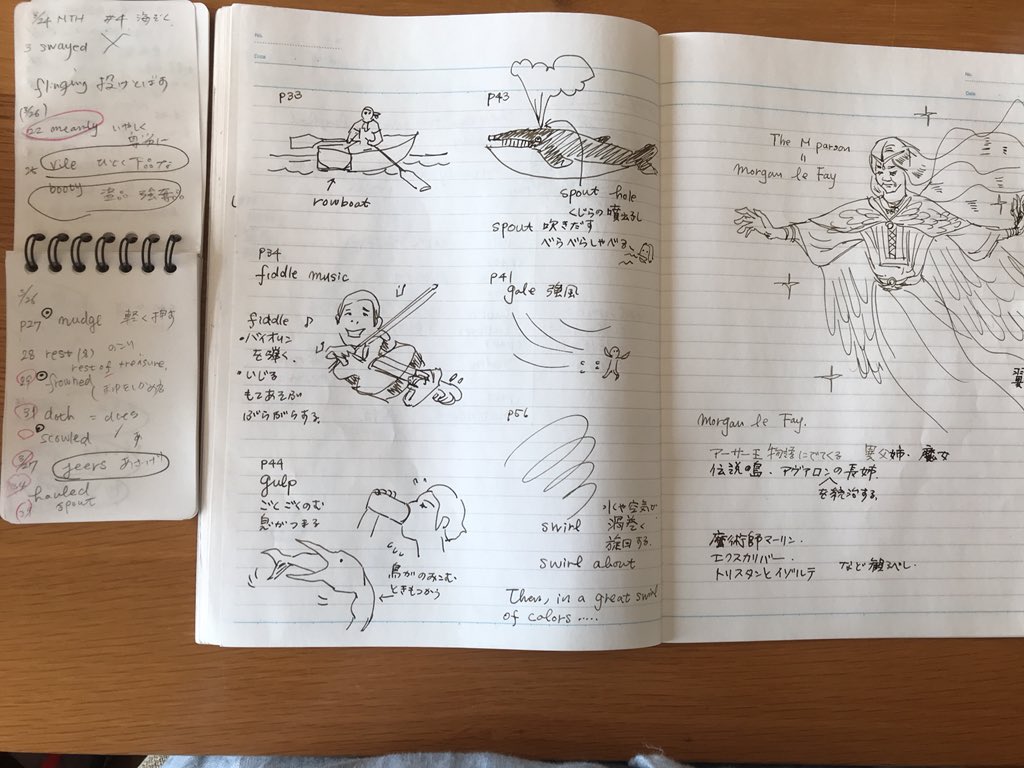 3/24 MTH #4 海ぞく
3 swayed
flinging 投げとばす
(3/26)
22 meanly いやしく
卑劣に
25 vile ひどく下品な
booty 盗品 強奪品
3/26
P27 nudge 軽く押す
28 rest(s) のこり
rest of treasure
29 frowned
31 doth = does
scowled
3/27 jeers あざけり
34 hauled
38 spout
No.
Date
P33
rowboat
P34
fiddle music
fiddle ♪
・バイオリン
を弾く.
・いじる
もてあそぶ
ぶらぶらする.
P44
gulp
ごくごくのむ
息がつまる
鳥がのみこむ
ときもつかう
P43
spout hole
くじらの噴出孔
spout 吹きだす
べらべらしゃべる
P41
gale 強風
P56
swirl 水や空気が
渦巻く
旋回する.
swirl about
Then, in a great swirl
of colors .....
No.
Date
The M person
=
morgan le Fay
翼
morgan le Fay.
アーサー王物語にでてくる 異父姉・魔女
伝説の島・アヴァロンの長姉
を統治する.
魔術師マーリン.
エクスカリバー.
トリスタンとイゾルテ など観るべし.